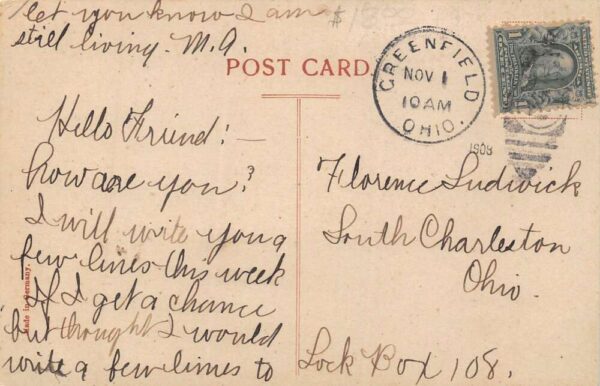 let you know I am
still living. M.A.
POST CARD
GREENFIELD
NOV 1
10AM
OHIO.
1908
Hello Friend! —
how are you?
I will write you a
few lines this week
If I get a chance
but thought I would
write a few limes to
Florence Ludwick
South Charleston
Ohio.
Lock Box 108.
Made in Germany.